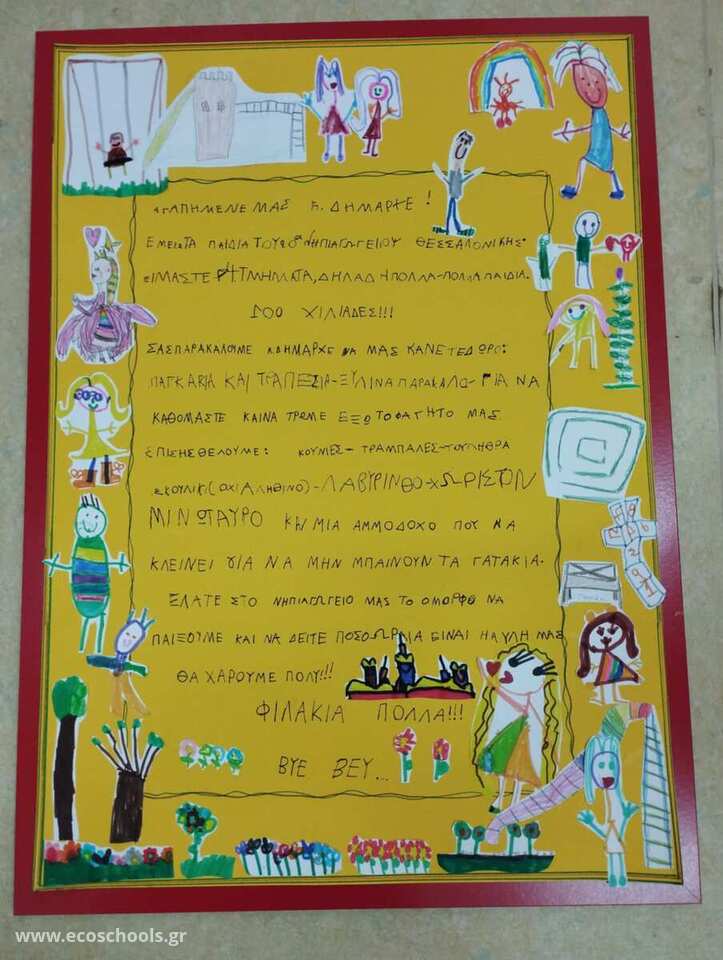 ΑΓΑΠΗΜΕΝΕ ΜΑΣ Κ. ΔΗΜΑΡΧΕ !
ΕΜΕΙΣ ΤΑ ΠΑΙΔΙΑ ΤΟΥ ΝΗΠΙΑΓΩΓΕΙΟΥ ΘΕΣΣΑΛΟΝΙΚΗΣ
ΕΙΜΑΣΤΕ 4 ΤΜΗΜΑΤΑ, ΔΗΛΑΔΗ ΠΟΛΛΑ-ΠΟΛΛΑ ΠΑΙΔΙΑ.
100 ΧΙΛΙΑΔΕΣ!!!
ΣΑΣ ΠΑΡΑΚΑΛΟΥΜΕ Κ.ΔΗΜΑΡΧΕ ΝΑ ΜΑΣ ΚΑΝΕΤΕ ΔΩΡΟ:
ΠΑΓΚΑΚΙΑ ΚΑΙ ΤΡΑΠΕΖΙΑ-ΞΥΛΙΝΑ ΠΑΡΑΚΑΛΩ-ΓΙΑ ΝΑ
ΚΑΘΟΜΑΣΤΕ ΚΑΙ ΝΑ ΤΡΩΜΕ ΕΞΩ ΤΟ ΦΑΓΗΤΟ ΜΑΣ.
ΕΠΙΣΗΣ ΘΕΛΟΥΜΕ: ΚΟΥΝΙΕΣ-ΤΡΑΜΠΑΛΕΣ-ΤΣΟΥΛΗΘΡΑ
ΣΚΟΥΛΙΚΙ (ΟΧΙ ΑΛΗΘΙΝΟ)-ΛΑΒΥΡΙΝΘΟ-ΧΩΡΙΣ ΤΟΝ
ΜΙΝΩΤΑΥΡΟ ΚΑΙ ΜΙΑ ΑΜΜΟΔΟΧΟ ΠΟΥ ΝΑ
ΚΛΕΙΝΕΙ ΓΙΑ ΝΑ ΜΗΝ ΜΠΑΙΝΟΥΝ ΤΑ ΓΑΤΑΚΙΑ.
ΕΛΑΤΕ ΣΤΟ ΝΗΠΙΑΓΩΓΕΙΟ ΜΑΣ ΤΟ ΟΜΟΡΦΟ ΝΑ
ΠΑΙΞΟΥΜΕ ΚΑΙ ΝΑ ΔΕΙΤΕ ΠΟΣΟ ΩΡΑΙΑ ΕΙΝΑΙ Η ΑΥΛΗ ΜΑΣ
ΘΑ ΧΑΡΟΥΜΕ ΠΟΛΥ!!!
ΦΙΛΑΚΙΑ ΠΟΛΛΑ!!!
BYE BEY...
www.ecoschools.gr